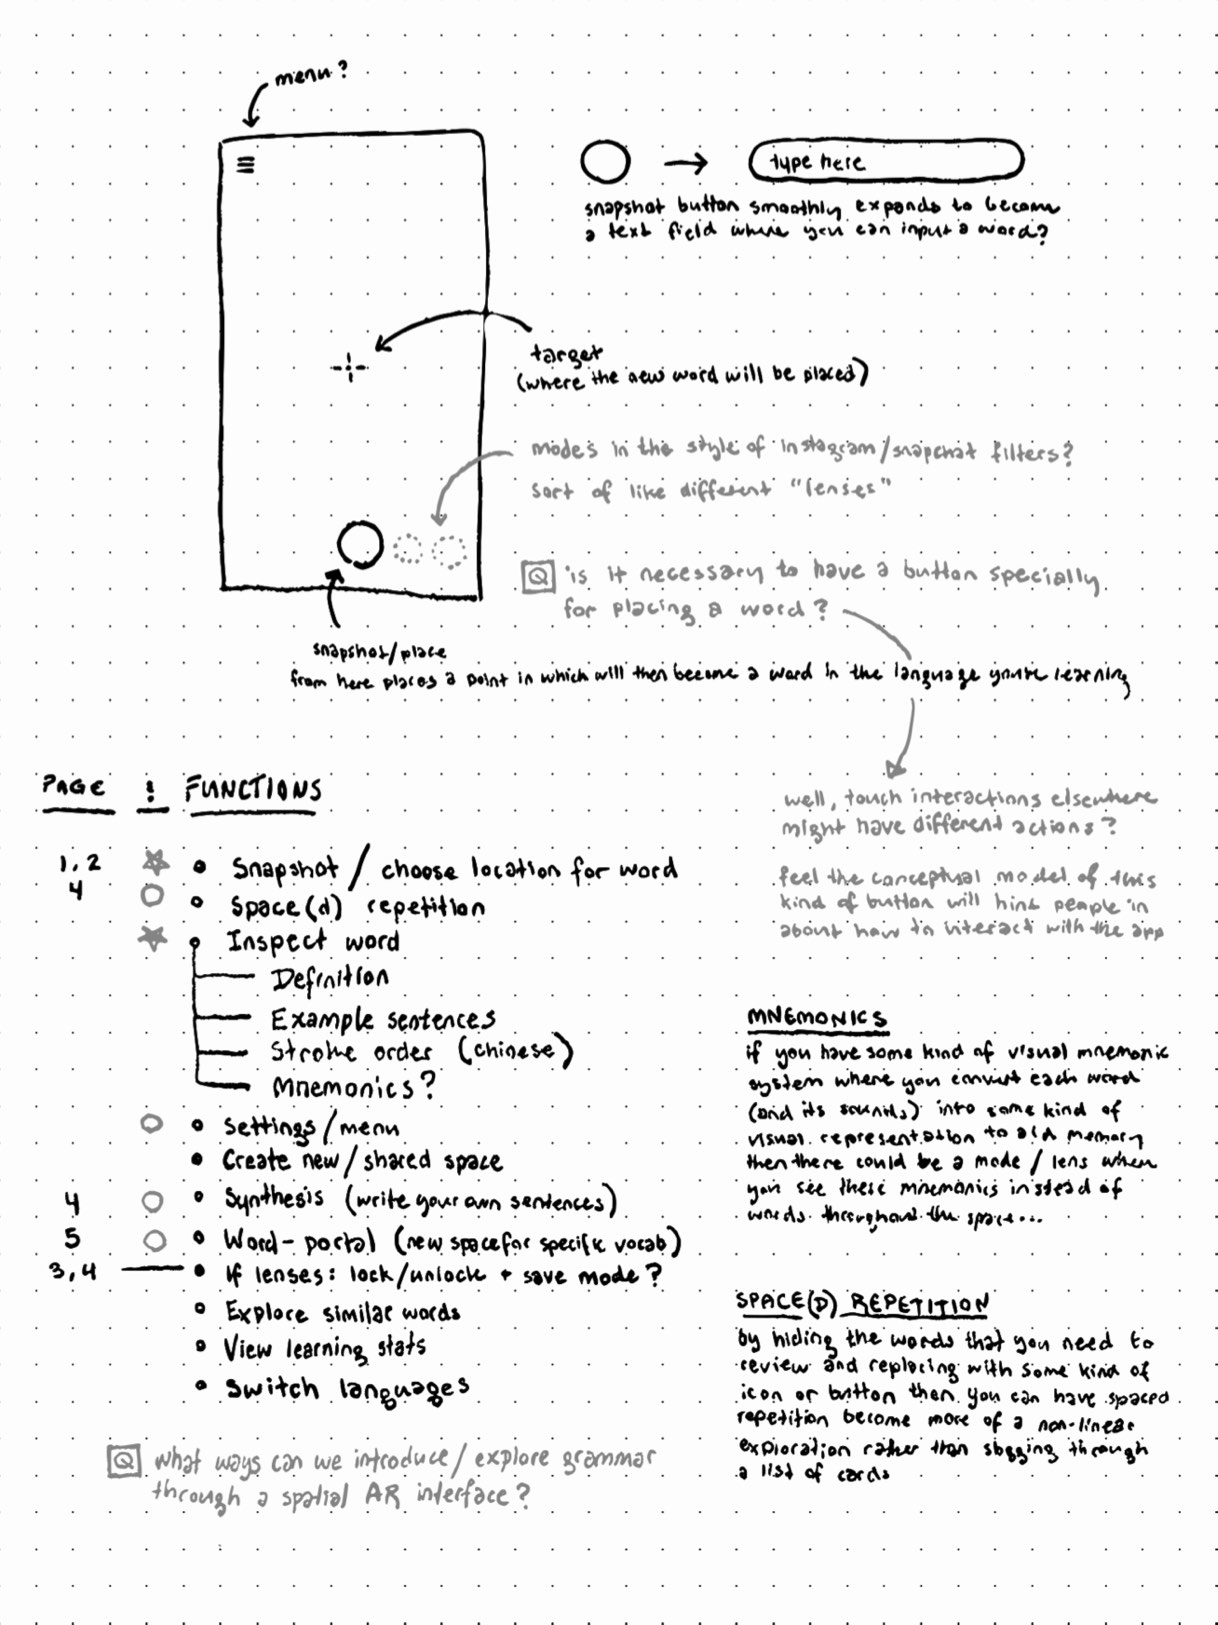 menu?
type here
snapshot button smoothly expands to become
a text field where you can input a word?
target
(where the new word will be placed)
modes in the style of instagram/snapchat filters?
sort of like different "lenses"
Q is it necessary to have a button specially
for placing a word?
snapshot/place
from here places a point in which will then become a word in the language you're learning
well, touch interactions elsewhere
might have different actions?
feel the conceptual model of this
kind of button will hint people in
about how to interact with the app
PAGE ! FUNCTIONS
1,2 Snapshot / choose location for word
4 Space(d) repetition
Inspect word
Definition
Example sentences
Stroke order (chinese)
Mnemonics?
Settings/menu
Create new/shared space
4 Synthesis (write your own sentences)
5 Word-portal (new space for specific vocab)
3,4 If lenses: lock/unlock + save mode?
Explore similar words
View learning stats
Switch languages
Q what ways can we introduce/explore grammar
through a spatial AR interface?
MNEMONICS
if you have some kind of visual mnemonic
system where you convert each word
(and its sounds) into some kind of
visual representation to aid memory
then there could be a mode/lens when
you see these mnemonics instead of
words throughout the space...
SPACE(D) REPETITION
by hiding the words that you need to
review and replacing with some kind of
icon or button then you can have spaced
repetition become more of a non-linear
exploration rather than slogging through
a list of cards